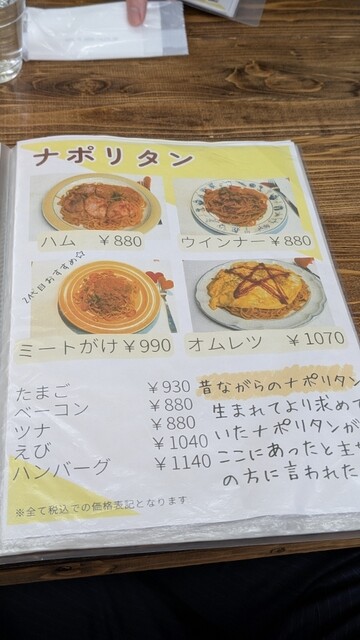 ナポリタン
ハム ¥880
ウインナー ¥880
2代目おすすめ☆
ミートがけ ¥990
オムレツ ¥1070
たまご ¥930
ベーコン ¥880
ツナ ¥880
えび ¥1040
ハンバーグ ¥1140
昔ながらのナポリタン
生まれてより求めて
いたナポリタンが
ここにあったと主
の方に言われた
※全て税込での価格表記となります